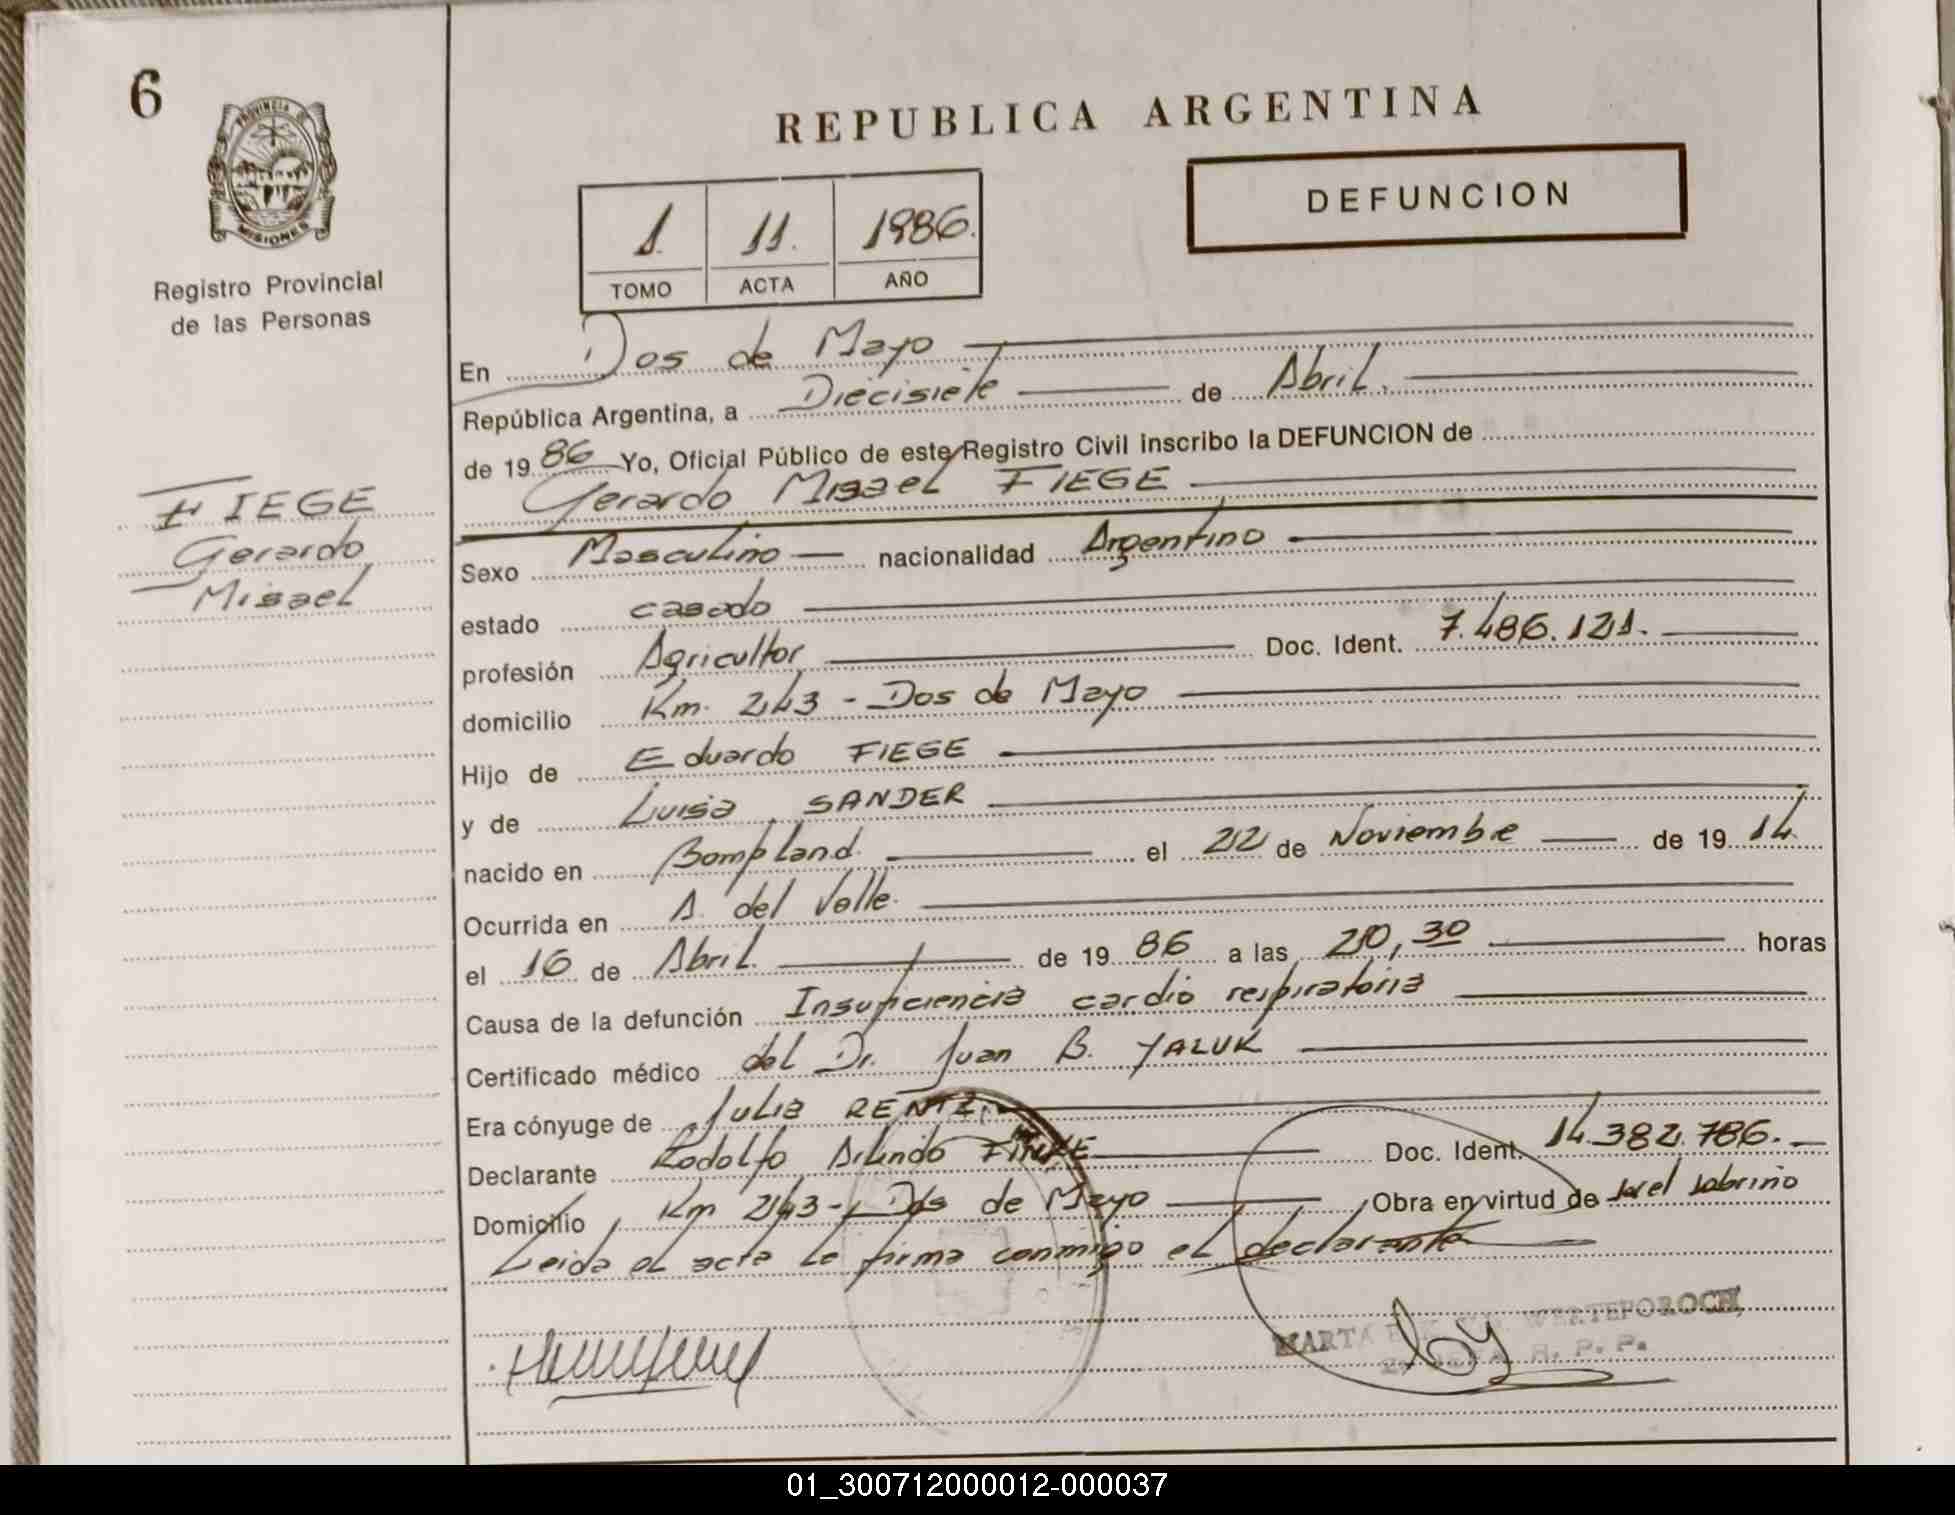 6
REPUBLICA ARGENTINA
PROVINCIA DE
MISIONES
DEFUNCION
1 11. 1986.
TOMO ACTA AÑO
Registro Provincial
de las Personas
En Dos de Mayo
República Argentina, a Diecisiete de Abril.
de 19 86 Yo, Oficial Público de este Registro Civil inscribo la DEFUNCION de
Gerardo Misael FIEGE
FIEGE
Gerardo
Misael
Sexo Masculino nacionalidad Argentino
estado casado
profesión Agricultor Doc. Ident. 7.486.121.
domicilio Km. 243 - Dos de Mayo
Hijo de Eduardo FIEGE
y de Luisa SANDER
nacido en Bompland. el 22 de Noviembre de 19 14.
Ocurrida en A. del Valle.
el 16 de Abril. de 19 86 a las 20,30 horas
Causa de la defunción Insuficiencia cardio respiratoria
Certificado médico del Dr. Juan B. YALUK
Era cónyuge de Julia RENTZ
Declarante Rodolfo Arlindo Doc. Ident. 14.382.786.
Domicilio Km 243 - Dos de Mayo Obra en virtud de ser el sobrino
Leida el acta la firma conmigo el declarante
MARTA WERTEPOROCH
R. P. P.
01_300712000012-000037